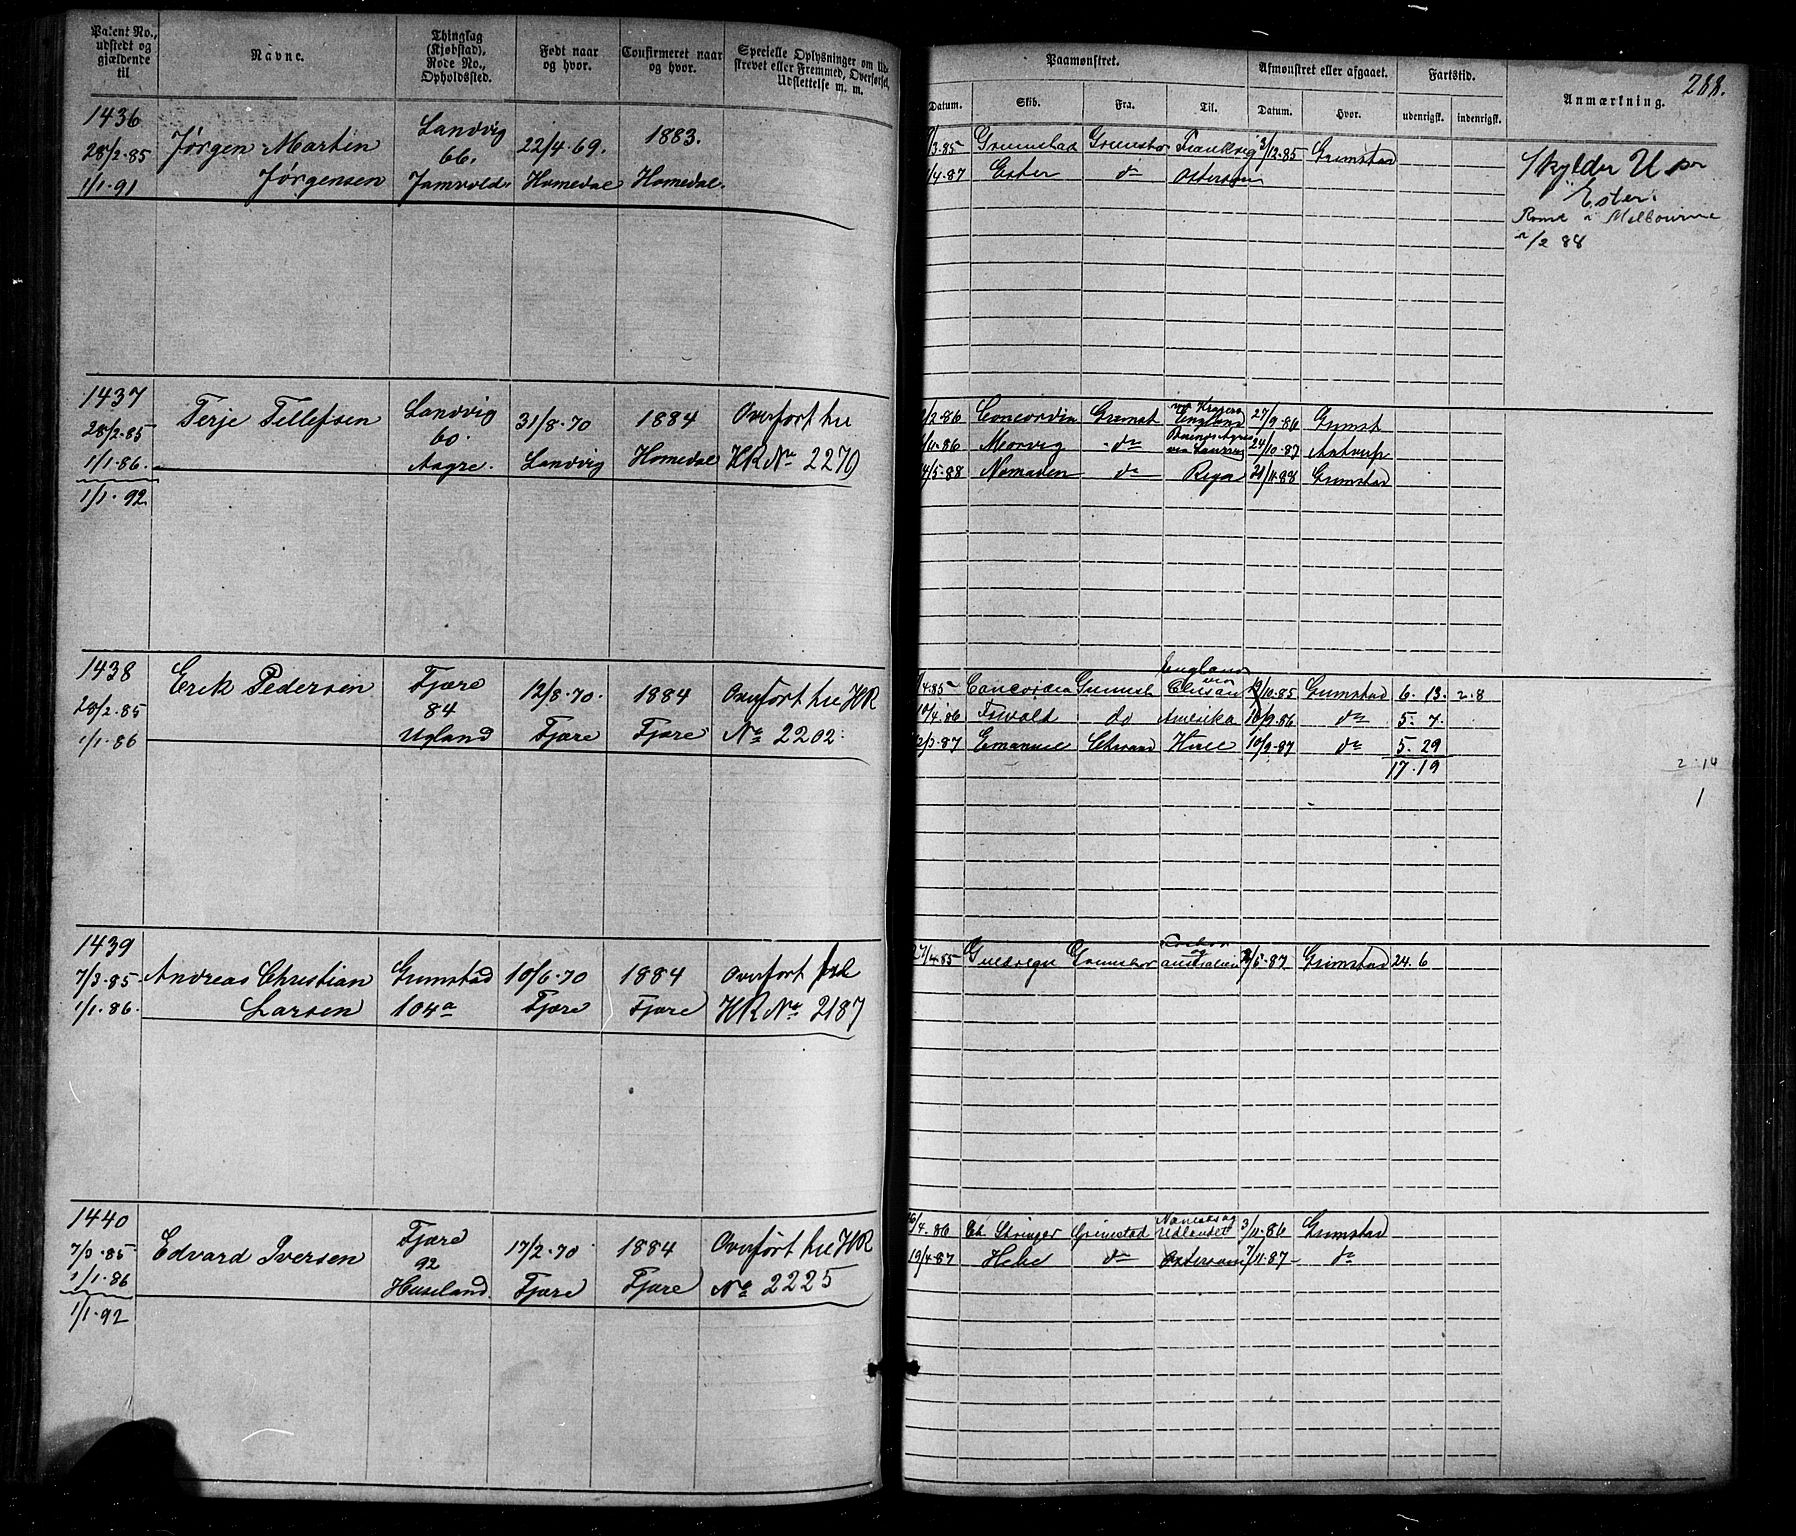 288.
Patent No., udstedt og gjældende til
Navne.
Thinglag (Kjøbstad). Rode No., Opholdssted.
Født naar og hvor.
Confirmeret naar og hvor.
Specielle Oplysninger om til- skrevet eller Fremmed, Overførsel, Udslettelse m. m.
Paamønstret.
Afmønstret eller afgaaet.
Fartstid.
Anmærkning.
Datum. Skib. Fra. Til. Datum. Hvor. udenrigsk. indenrigsk.
1436
28/2.85
1/1.91
Jørgen Martin
Jørgensen
Landvig
66.
22/4.69.
Homedal
1883.
Homedal
3.85 Grimstad 2/12.85 Grimstad
/4.87 Ester do Østersøen
Skylder U pr
Ester.
Rømt i Melbourne
/2 88
1437
28/2.85
1/1.86.
1/1.92
Terje Tellefsen
Landvig
60.
Aagre.
31/8.70
Landvig
1884
Homedal
Overført til
HR No 2279
/2.86 Concordia Grimst England 27/9.86 Grimst
/10.86 Morvig do 24/10.87 Antverp
/5.88 Nomaden do Riga 21/11.88 Grimstad
1438
28/2.85
1/1.86
Erik Pedersen
Fjære
84
Ugland
12/8.70.
Fjære
1884
Fjære
Overført til HR
No 2202.
England
/4.85 Concordia /10.85 Grimstad 6. 13. 2.8
10/4.86 do Amerika /9.86 do 5. 7.
/3.87 Emanuel 10/9.87 do 5. 29
17.19
2.14
1
1439
7/3.85
1/1.86.
Andreas Christian
Larsen
Grimstad
104a
10/6.70
Fjære
1884
Fjære
Overført til
HR No 2187
27/4.85 og Australien /5.87 Grimstad 24.6
1440
7/3.85
1/1.86
1/1.92
Edvard Iversen
Fjære
92
Huseland
17/2.70
Fjære
1884
Fjære
Overført til HR
No 2225
/4.86 Stringer Grimstad Udlandet 3/11.86 Grimstad
19/4.87 Hebe do Østersøen 7/11.87 do